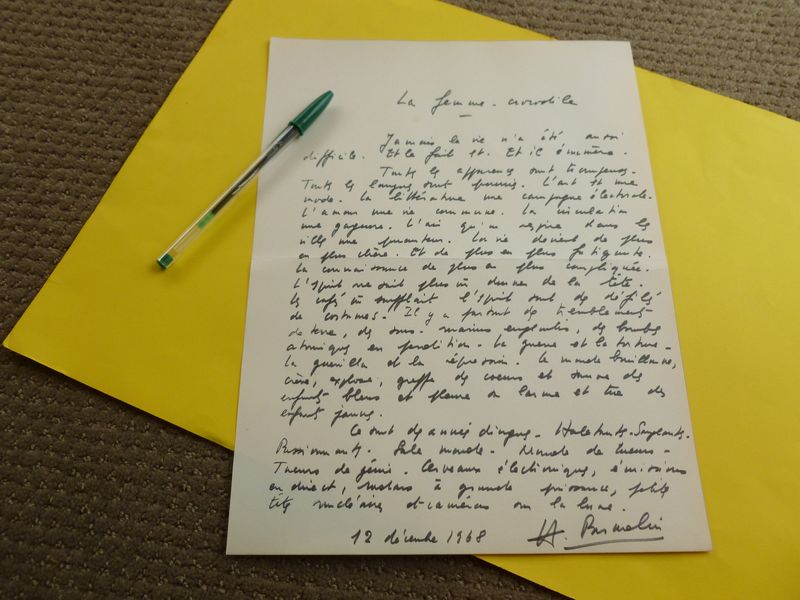 La femme-crocodile
Jamais la vie n'a été aussi
difficile. Et le fait est. Et il énumère.
Toutes les apparences sont trompeuses.
Toutes les langues sont pourries. L'art est une
mode. La littérature une campagne électorale.
L'amour une vie commune. La circulation
une gageure. L'air qu'on respire dans les
villes une puanteur. La vie devient de plus
en plus chère. Et de plus en plus fatigante.
La connaissance de plus en plus compliquée.
L'esprit ne sait plus où donner de la tête.
Les cafés où soufflait l'esprit sont des défilés
de costumes. Il y a partout des tremblements
de terre, des sous-marins engloutis, des bombes
atomiques en perdition. La guerre et la torture.
La guérilla et la répression. Le monde bouillonne,
crève, explose, greffe des coeurs et sauve des
enfants bleus et pleure en larme et tue des
enfants jaunes.
Ce sont des années dingues. Haletantes.
Passionnantes. Sale monde. Monde de tueurs.
Tueurs de génie. Cerveaux électroniques, émissions
en direct, motars à grande puissance, petites
têtes nucléaires et caméras sur la lune.
12 décembre 1968 H. Parmelin